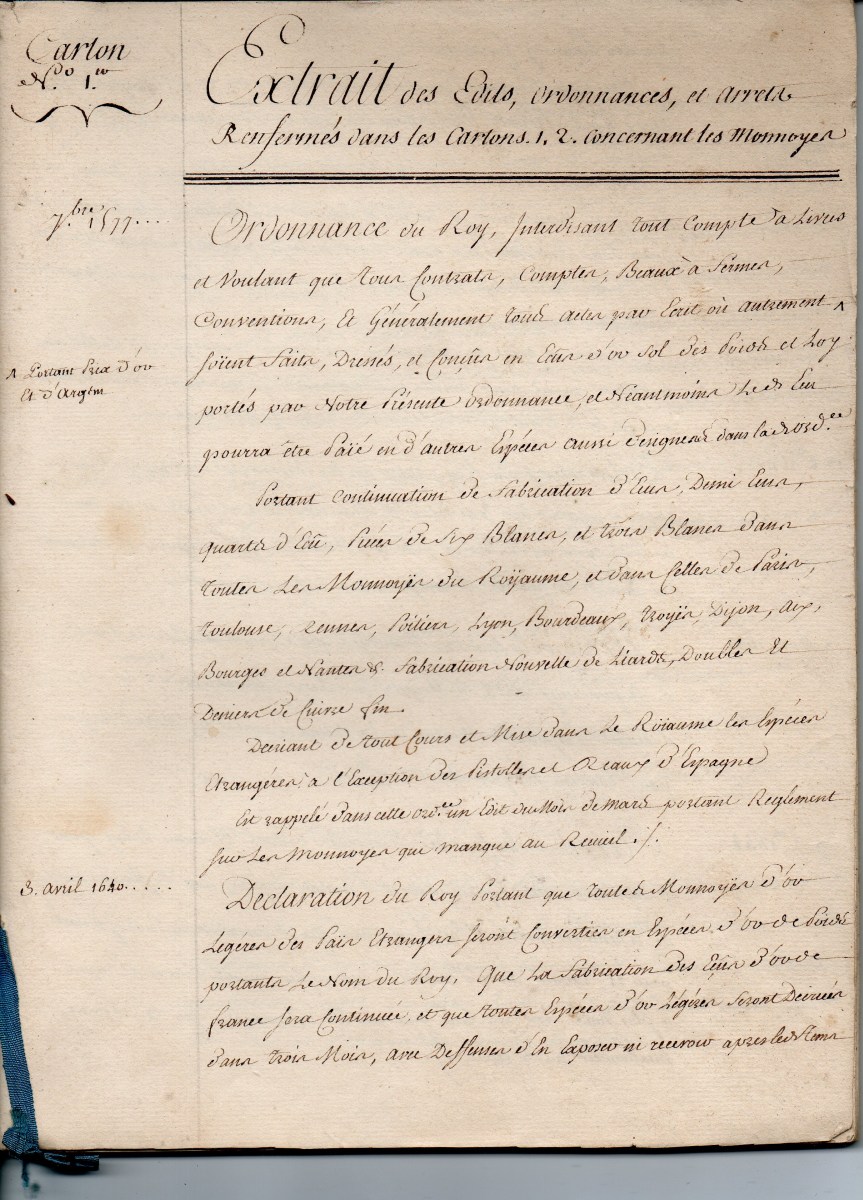 Carton
N.º 1.er
Extrait des Edits, Ordonnances, et Arrets
Renfermés dans les Cartons. 1. 2. Concernant les Monnoyes
7.bre 1577....
Ordonnance du Roy, Interdisant tout Compte à Livres
et Voulant que tous Contrats, Comptes, Beaux à fermes,
Conventions, Et Généralement tous actes par Ecrit où autrement ^
^ Portant Prix d'or
Et d'Argent
soïent faits, Dressés, et Conçûs en Ecus d'or sol des Poids et Loy
portés par Notre Présente ordonnance, et Néantmoins Le d. Ecu
pourra être Païé en d'autres Espéces aussi désignées dans lad. ord.ce
Portant continuation de fabrication d'Ecus, Demi Ecus,
quarts d'Ecû, Piéces de Six Blancs, et trois Blancs dans
toutes Les Monnoyës du Roÿaume, et dans Celles de Paris,
Toulouse, Rennes, Poitiers, Lyon, Bourdeaux, Troyës, Dijon, Aix,
Bourges et Nantes &. fabrication Nouvelle de Liards, Doubles Et
Deniers de Cuivre fin.
Decriant de tout Cours et Mise dans Le Roÿaume les Espéces
Etrangéres à l'Exception des Pistolles et Reaux d'Espagne
Est rappelé dans cette ord.ce un Edit du Mois de mars portant Reglement
sur Les Monnoyes qui manque au Recueil ./.
3. avril 1640.....
Declaration du Roy Portant que toutes Monnoyës d'or
Légéres des Païs Etrangers seront Converties en Espéces d'or de Poids
portants Le Nom du Roy, Que La fabrication des Ecus d'or de
france sera Continuée, et que toutes Espéces d'or Légéres seront Decriées
dans trois Mois, avec Deffenses d'En Exposer ni recevoir apres led. tems